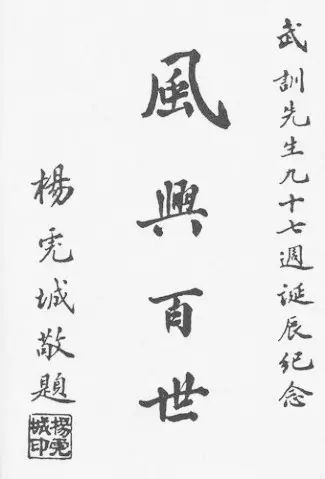 武訓先生九十七週誕辰紀念
風興百世
楊虎城敬題
楊虎
城印